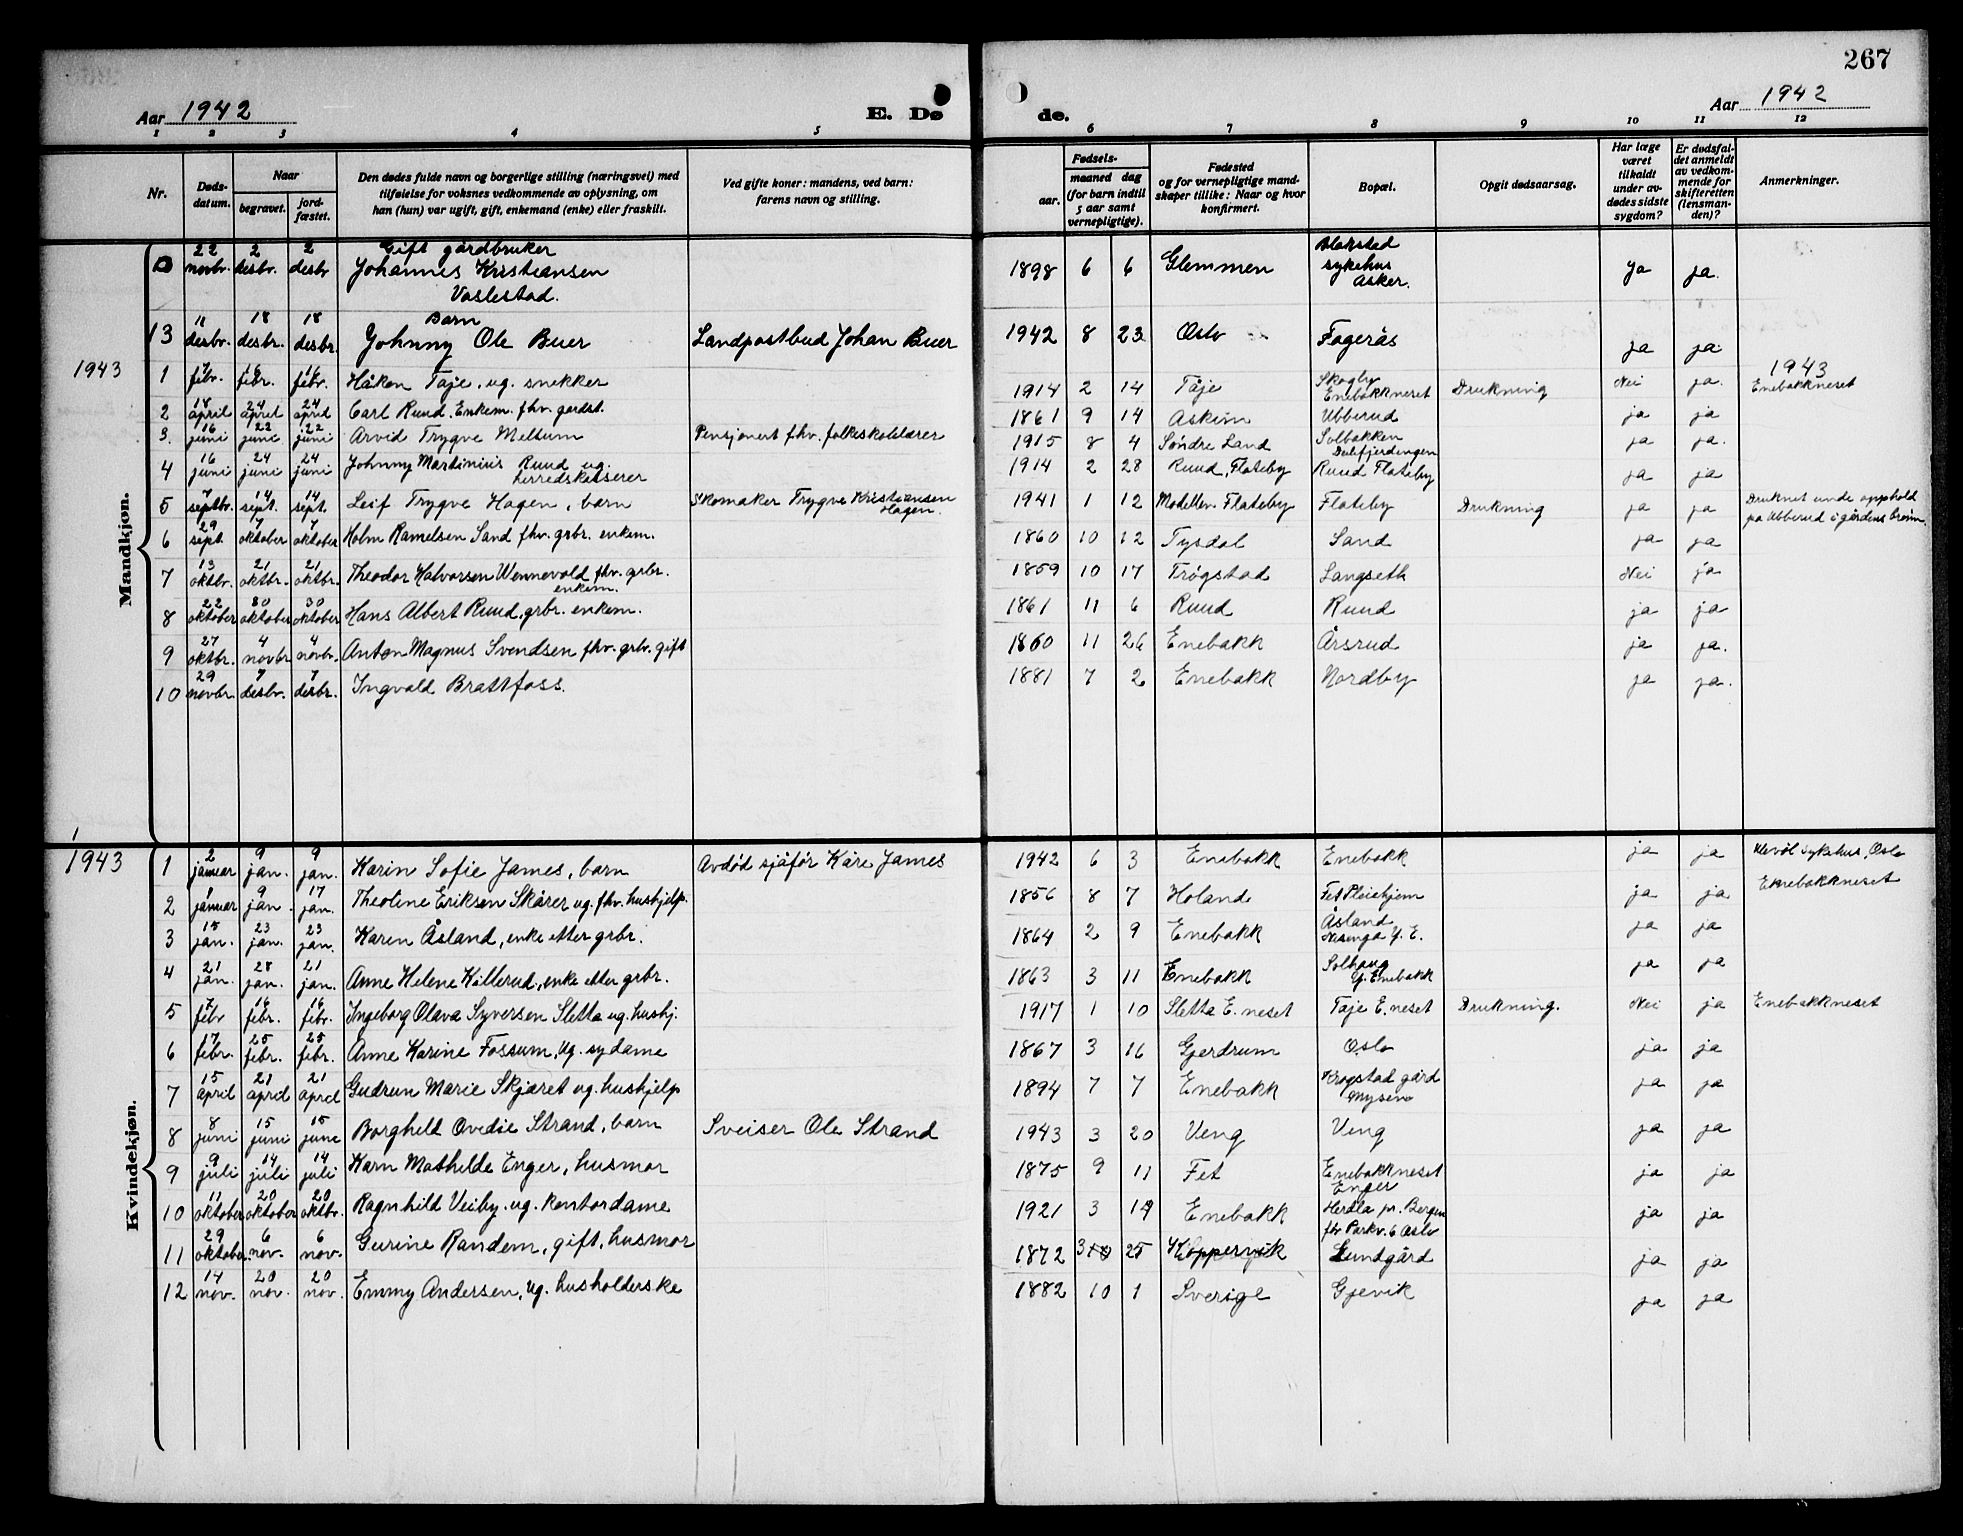 267
Aar 1942
E. Dø
de.
Aar 1942
1 2 3 4 5 6 7 8 9 10 11 12
Nr.
Døds-
datum.
Naar
begravet.
jord-
fæstet.
Den dødes fulde navn og borgerlige stilling (næringsvei) med
tilføielse for voksnes vedkommende av oplysning, om
han (hun) var ugift, gift, enkemand (enke) eller fraskilt.
Ved gifte koner: mandens, ved barn:
farens navn og stilling.
Fødsels-
aar.
maaned dag
(for barn indtil
5 aar samt
vernepligtige).
Fødested
og for vernepligtige mand-
skaper tillike: Naar og hvor
konfirmert.
Bopæl.
Opgit dødsaarsag.
Har læge
været
tilkaldt
under av-
dødes sidste
sygdom?
Er dødsfal-
det anmeldt
av vedkom-
mende for
skifteretten
(lensman-
den)?
Anmerkninger.
Mandkjøn.
22 2 2 Gift gårdbruker
novbr. desbr. desbr Johannes Kristiansen 1898 6 6 Glemmen Blakstad sykehus Asker. Ja ja.
Vaslestad.
11 18 18 Barn
13 desbr. desbr. desbr. Johnny Ole Buer Landpostbud Johan Buer 1942 8 23 Oslo Fagerås ja ja.
1943
1943
1 7 febr. 16 febr. 16 febr. Håkon Taje, ug. snekker 1914 2 14 Tåje Skogly Enebakkneset Drukning Nei ja. Enebakkneset
2 18 april 24 april 24 april Carl Ruud. Enkem. fhv. gardst. 1861 9 14 Askim Ubberud ja ja
3. 16 juni 22 juni 22 juni Arvid Trygve Meltum Pensjonert fhv. folkeskolelærer 1915 8 4 Søndre Land Solbakken Dalefjerdingen ja ja.
4 16 juni 24 juni 24 juni Johnny Martinius Ruud ug. herredskasserer 1914 2 28 Ruud, Flateby Ruud Flateby ja ja
5 7 septbr. 14 sept. 14 sept. Leif Trygve Hagen, barn Skomaker Trygve Kristiansen Hagen. 1941 1 12 Flateby Flateby Drukning ja ja Druknet unde opphold
på Ubberud i gårdens brønn.
6 29 sept. 7 oktober 7 oktober Holm Ramelsen Sand fhv. grbr. enkem. 1860 10 12 Tysdal Sand ja ja
7 13 oktbr. 21 oktbr. 21 oktbr. Theodor Halvorsen Wennevold fhv. grbr. enkem. 1859 10 17 Trøgstad Langseth Nei ja
8 22 oktober 30 oktober 30 oktober Hans Albert Ruud, grbr. enkem. 1861 11 6 Ruud Ruud ja ja
9 27 oktbr. 4 novbr 4 novbr. Anton Magnus Svendsen fhv. grbr. gift 1860 11 26 Enebakk Årsrud ja ja.
10 29 novbr. 7 desbr. 7 desbr. Ingvald Brattfoss. 1881 7 2 Enebakk Nordby ja ja.
1943
Kvindekjøn.
1 2 januar 9 jan. 9 jan. Karin Sofie James, barn Avdød sjåfør Kåre James 1942 6 3 Enebakk Enebakk ja ja Ullevål sykehus, Oslo
2 januar 9 jan. 17 jan. Theoline Eriksen Skårer ug. fhv. hushjelp. 1856 8 7 Høland Fet Pleiehjem ja ja Enebakkneset
3 15 jan. 23 jan. 23 jan. Karen Åsland, enke etter grbr. 1864 2 9 Enebakk Åsland Y. E. ja ja
4 21 jan. 28 jan. 21 jan. Anne Helene Killerud, enke etter grbr. 1863 3 11 Enebakk Solhaug Y. Enebakk ja ja
5 7 febr 16 febr. 16 febr. Ingeborg Olava Syversen Sletta ug. hushj. 1917 1 10 Sletta E. neset Taje E. neset Drukning. Nei ja Enebakkneset
6 17 febr. 25 febr. 25 febr. Anne Karine Fossum, ug. sydame 1867 3 16 Gjerdrum Oslo ja ja
7 15 april 21 april 21 april Gudrun Marie Skjæret ug. hushjelp 1894 7 7 Enebakk Krogstad gård Mysen ja ja
8 8 juni 15 juni 15 june Borghild Ovedie Strand, barn Sveiser Ole Strand 1943 3 20 Veng Veng ja ja
9 9 juli 14 juli 14 juli Karn Mathilde Enger, husmor 1875 9 11 Fet Enebakkneset Enger ja ja
10 11 oktober 20 oktober 20 oktbr. Ragnhild Veiby. ug. kontordame 1921 3 19 Enebakk Herdla pr. Bergen fhv Parkv. 6 Oslo ja ja
11 29 oktober. 6 nov. 6 nov. Gurine Randem, gift, husmor 1872 3 25 Koppervik Lundgård ja ja
12 14 nov. 20 nov. 20 nov. Emmy Andersen, ug. husholderske 1882 10 1 Sverige Gjevik ja ja